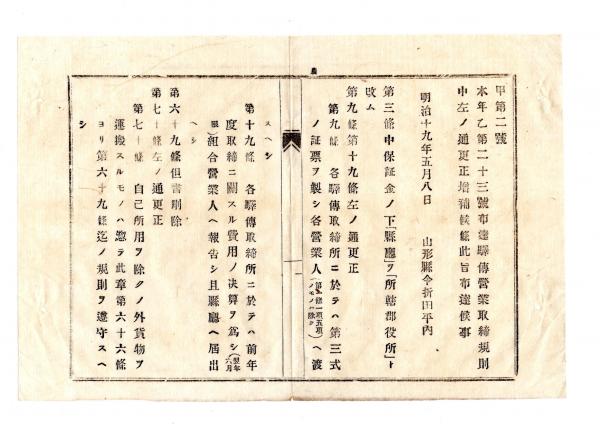 甲第二號
本年乙第二十三號布達驛傳營業取締規則
中左ノ通更正增補候條此旨布達候事
明治十九年五月八日　山形縣令折田平內
第三條中保証金ノ下「縣廳」ヲ「所轄郡役所」ト
改ム
第九條第十九條左ノ通更正
第九條　各驛傳取締所ニ於テハ第三式
ノ証票ヲ製シ各營業人（第 條一項五項ノモノハ除ク）ヘ渡
スヘシ
第十九條　各驛傳取締所ニ於テハ前年
度取締ニ關スル費用ノ決算ヲ爲シ（ 年六月
限）組合營業人ヘ報告シ且縣廳ヘ届出
ヘシ
第六十九條但書削除
第七十條左ノ通更正
第七十條　自己所用ヲ除クノ外貨物ヲ
運搬スルモノハ惣テ此章第六十六條
ヨリ第六十九條迄ノ規則ヲ遵守スヘ
シ